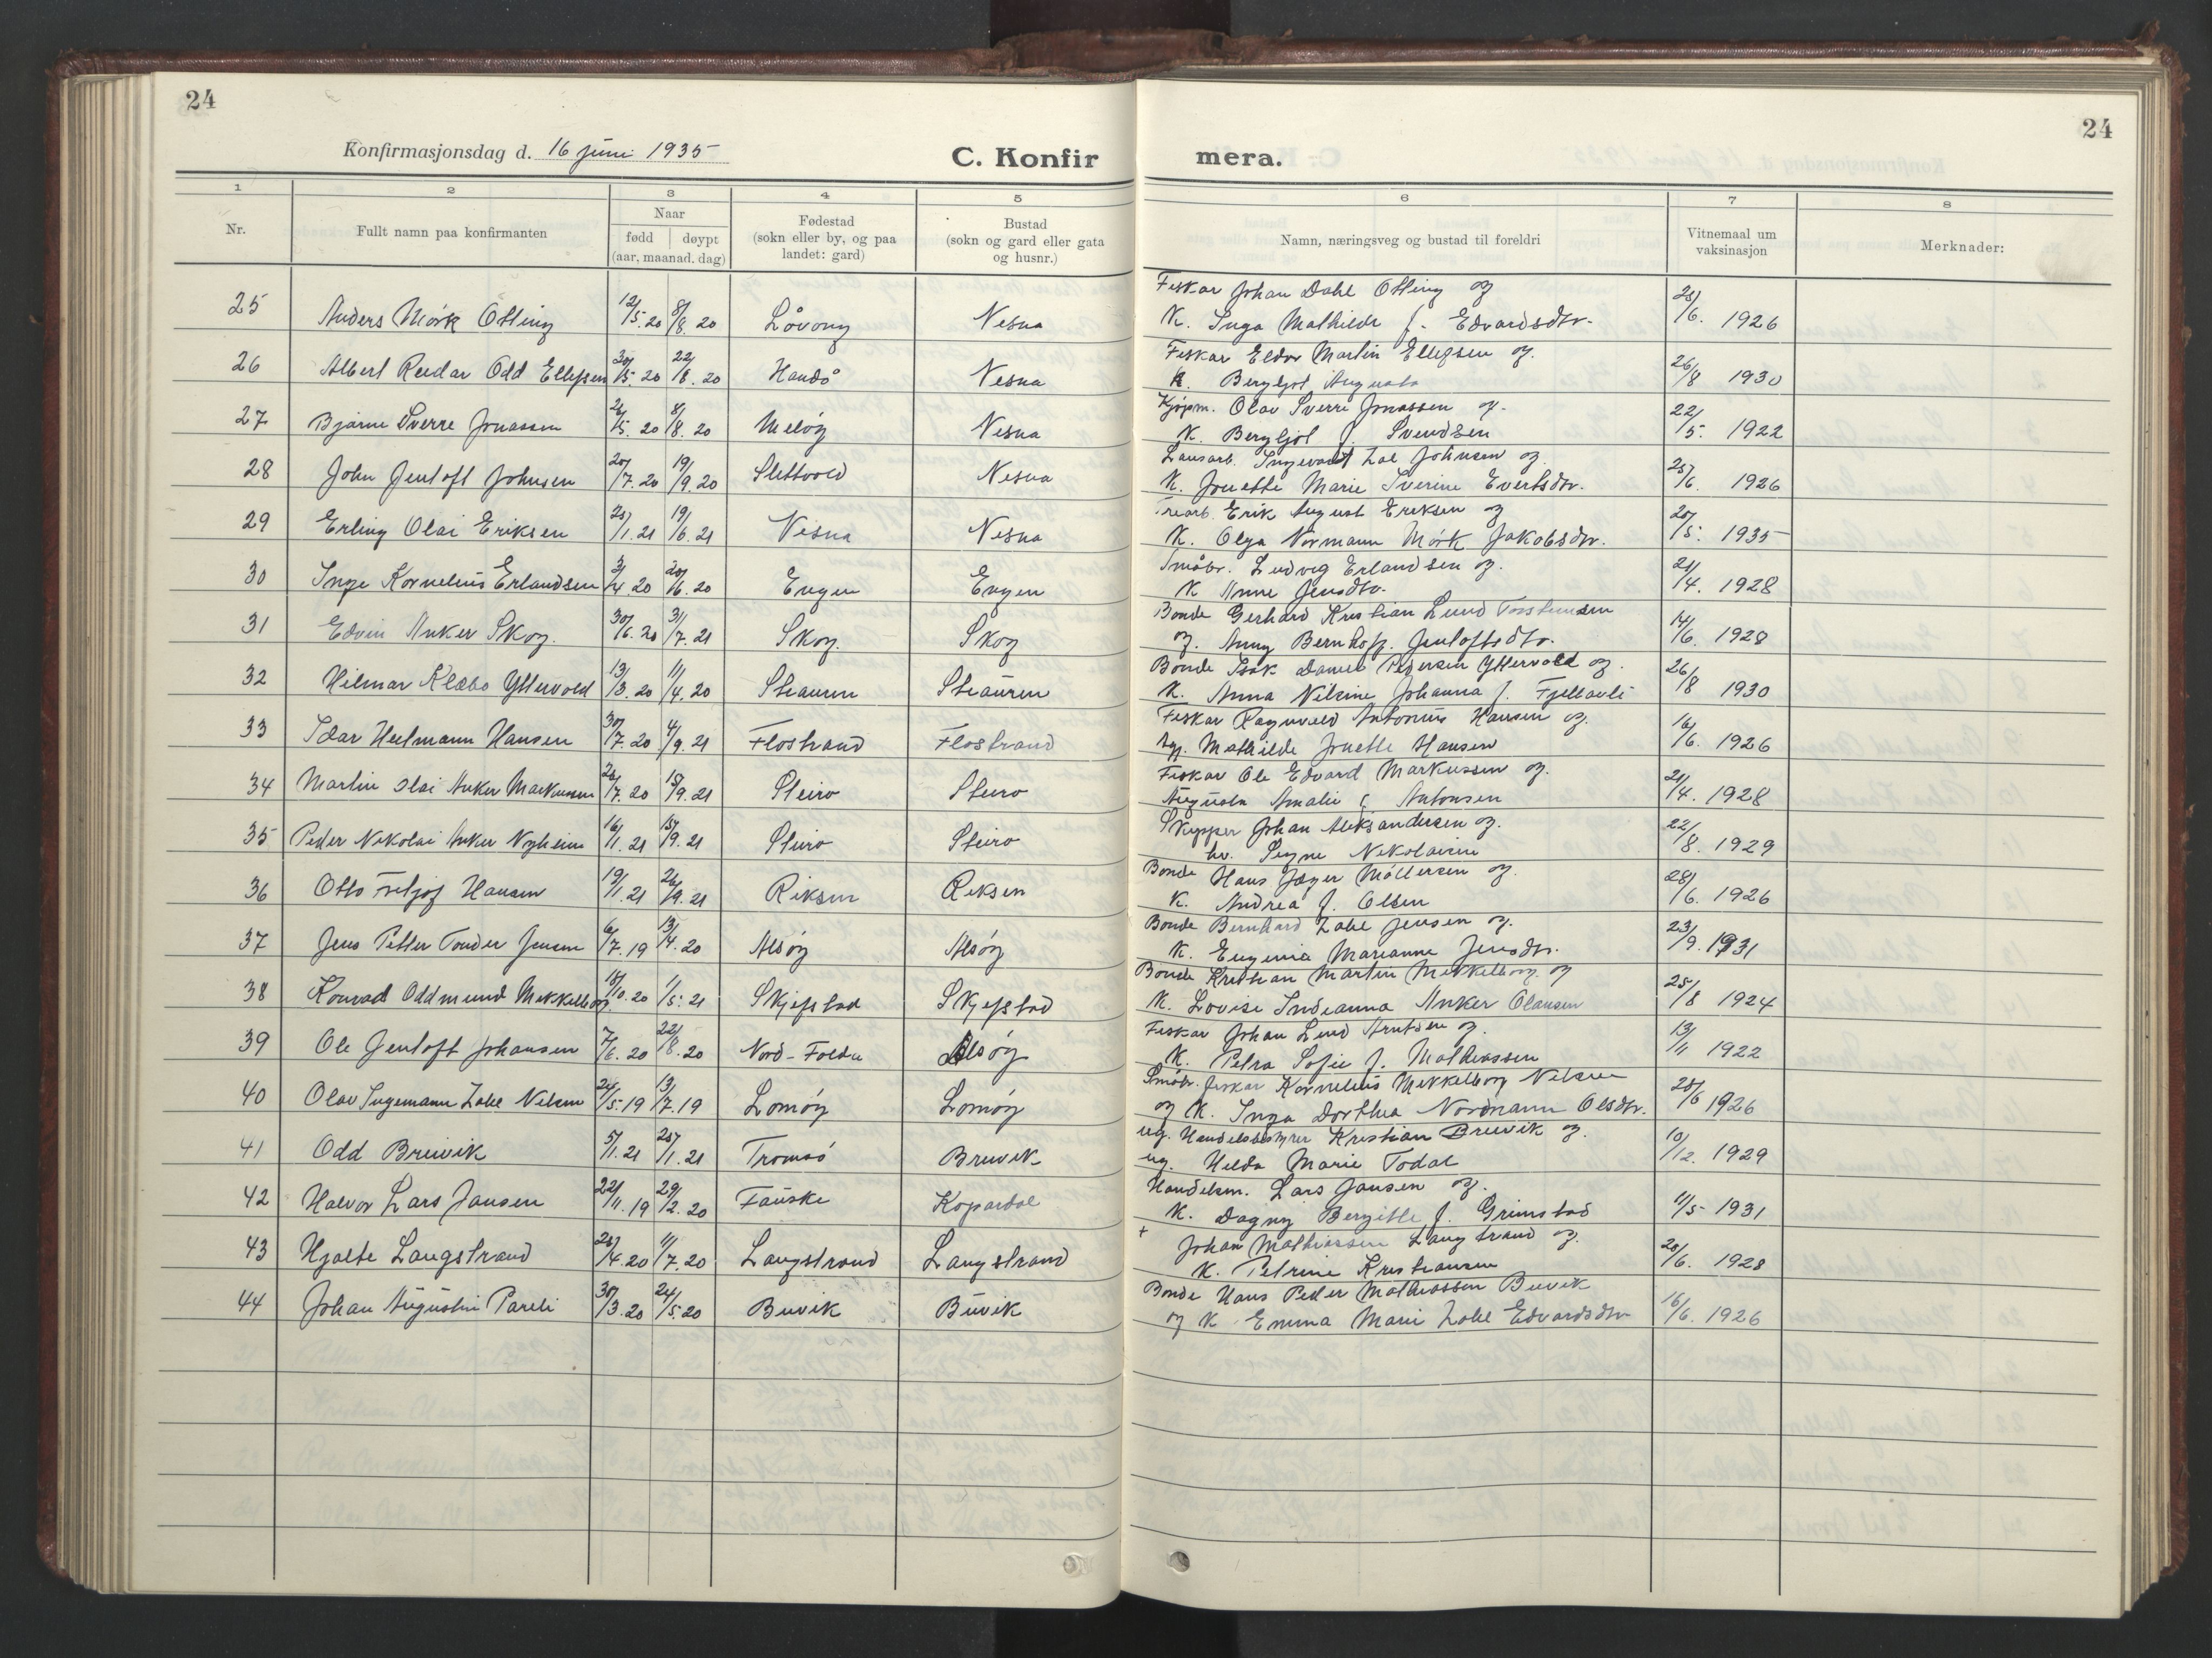 24
24
Konfirmasjonsdag d. 16 juni 1935
C. Konfir
mera.
1 2 3 4 5 6 7 8
Nr.
Fullt namn paa konfirmanten
Naar
fødd døypt
(aar, maanad. dag)
Fødestad
(sokn eller by, og paa
landet: gard)
Bustad
(sokn og gard eller gata
og husnr.)
Namn, næringsveg og bustad til foreldri
Vitnemaal um
vaksinasjon
Merknader:
Fiskar Johan Dahl Otting og
25 Anders Mørk Otting 12/5. 20 8/8. 20 Løvong Nesna K. Inga Mathilde f. Edvardsdtr. 28/6. 1926
Fiskar Eldor Martin Ellefsen og.
26 Albert Reidar Odd Ellefsen 30/5. 20 22/8. 20 Handö Nesna K. Bergljot Augusta 26/8 1930
Kjöpm. Olav Sverre Jonassen og.
27 Bjarne Sverre Jonassen 2/5. 20 8/8. 20 Melöy Nesna K. Bergljot f. Svendsen 22/5. 1922
Lausarb. Ingevart Zal Johnsen og.
28 John Jentoft Johnsen 20/7. 20 19/9. 20 Slettvold Nesna K. Jonette Marie Sverine Evertsdtr. 25/6. 1926
Trearb. Erik August Eriksen og
29 Erling Olai Eriksen 25/1. 21 19/6. 21 Nesna Nesna K. Olga Normann Mørk Jakobsdtr. 20/5. 1935
Småbr. Ludvig Erlandsen og.
30 Inge Kornelius Erlandsen 3/4 20 20/6. 20 Engen Engen K Anne Jensdtr. 21/4. 1928
Bonde Gerhard Kristian Lund Torstensen
31 Edvin Anker Skog. 30/6. 20 31/7. 21 Skog. Skog og. Anny Bernhofg. Jentoftsdtr. 14/6. 1928
Bonde Isak Daniel Pedersen Yttervold og.
32 Hilmar Klæbo Yttervold 13/3. 20 11/4. 20 Stauren Stauren K. Anna Nilsine Johanna f. Fjellavli 26/8 1930
Fiskar Ragnvald Antonius Hansen og.
33 Idar Heelmann Hansen 30/7. 20 4/9. 21 Flostrand Flostrand Mathilde Jonette Hansen 16/6. 1926
Fiskar Ole Edvard Markussen og.
34 Martin Olai Anker Markussen 26/7. 20 18/9. 21 Steiro Steiro Augusta Amalie f. Antonsen 21/4. 1928
Skipper Johan Aleksandersen og.
35 Peder Nikolai Anker Nyheim 16/1. 21 18/9. 21 Steiro Steiro hv. Signe Nikolaisen 22/8. 1929
Bonde Hans Jæger Möllersen og.
36 Otto Fritjof Hansen 19/1. 21 26/9. 21 Riksen Riksen K. Andrea f. Olsen 28/6. 1926
Bonde Bernhard Zahl Jensen og.
37 Jens Petter Tonder Jensen 6/7. 19 13/4. 20 Alsöy Alsöy K. Eugenia Marianne Jensdtr. 23/9. 1931
Bonde Kristian Martin Mikkelborg og
38 Konrad Oddmund Mikkelborg 18/10. 20 1/5. 21 Skjefstad Skjefstad K. Lovise Indianna Anker Olausen 25/8 1924
Fiskar Johan Lind Arntsen og.
39 Ole Jentoft Johansen 7/6. 20 22/8. 20 Nord-Folda Alsöy K. Petra Sofie f. Mathiassen 13/11 1922
Småbr. fiskar Kornelius Mikkelborg Nilsen
40 Olav Ingemann Zahl Nilsen 24/5. 19 13/7. 19 Lomöy Lomöy og K. Inga Dorthea Nordmann Olsdtr. 28/6 1926
ug. Handelsbestyrer Kristian Breivik og.
41 Odd Breivik 5/1. 21 25/1. 21 Tromsö Breivik ug. Hilda Marie Todal 10/12. 1929
Handelsm. Lars Jansen og.
42 Halvor Lars Jansen 22/11. 19 29/2. 20 Fauske Kopardal K. Dagny Bergitte f. Grimstad 11/5 1931
+ Johan Mathiassen Langstrand og.
43 Hjalte Langstrand 25/4. 20 11/7. 20 Langstrand Langstrand K. Petrine Kristiansen 28/6. 1928
Bonde Hans Peder Mathiassen Buvik
44 Johan Augustin Pareli 30/3. 20 24/5. 20 Buvik Buvik og K Emma Marie Zahl Edvardsdtr 16/6. 1926